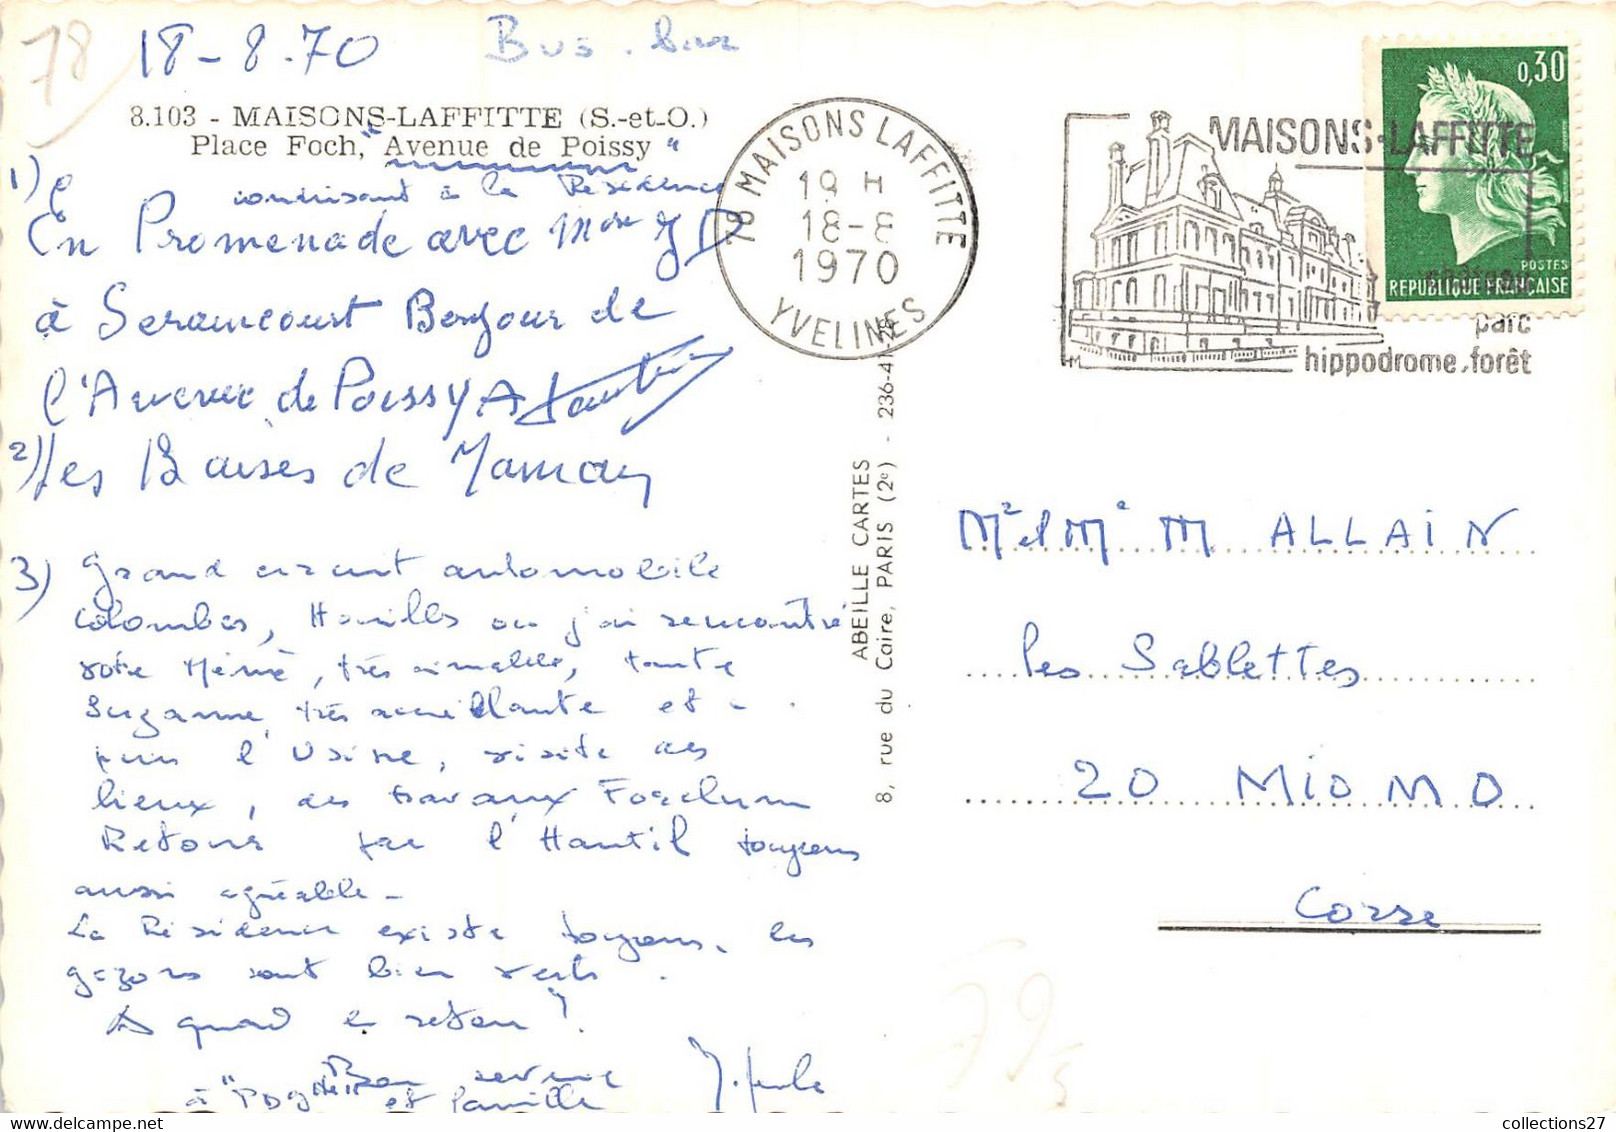 78
18-8.70
Bus.
8.103 - MAISONS-LAFFITTE (S.-et-O.)
Place Foch, "Avenue de Poissy"
conduisant à la Résidence
1) En Promenade avec Mme J D
à Seraincourt Bonjour de
l'Avenue de Poissy A
2) Les Baises de Maman
3) Grand circuit automobile
Colombes, Houilles ou j'ai rencontré
votre Mémé, très aimable, tante
Suzanne, très accueillante et -
puis l'Usine, visite des
lieux, des travaux Forclum
Retour par l'Hautil toujours
aussi agréable -
La Résidence existe toujours, les
gazons sont bien verts.
A quand le retour?
Bon
à et famille
78 MAISONS LAFFITTE
19 H
18-8
1970
YVELINES
MAISONS-LAFFITTE
château
parc
hippodrome, forêt
0,30
POSTES
REPUBLIQUE FRANÇAISE
ABEILLE CARTES
8, rue du Caire, PARIS (2e) - 236-41-78
Mr et Me M ALLAIN
les Sablettes
20 MIOMO
Corse
79
collections27